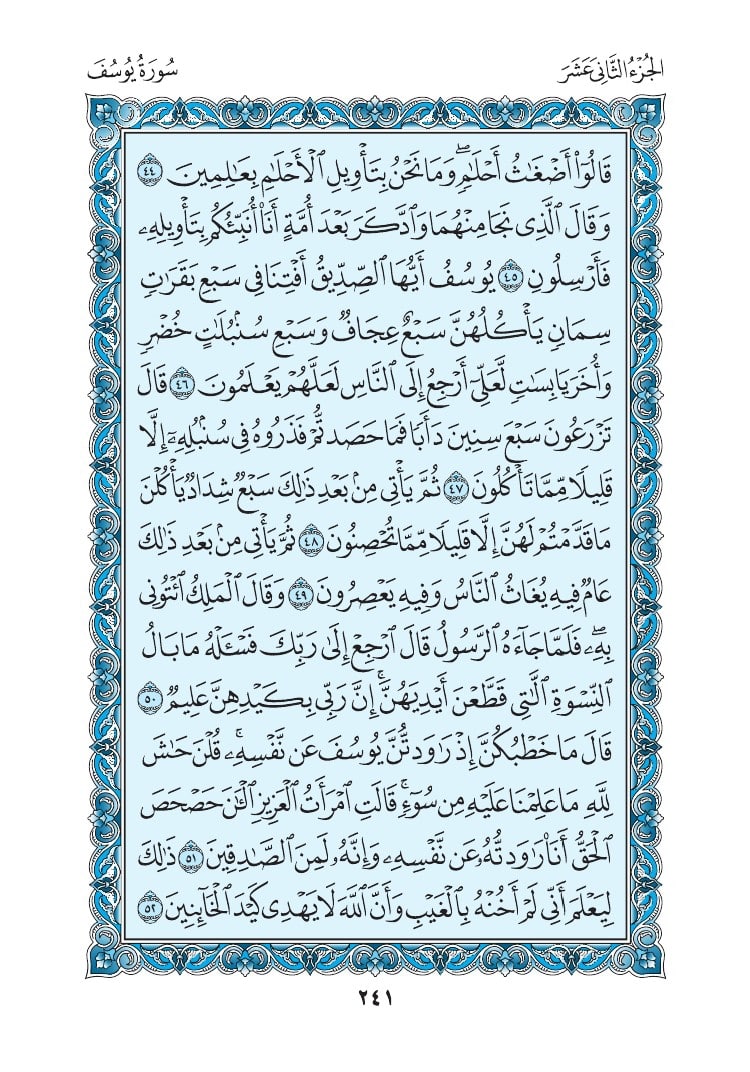 الجُزْءُ الثَّانِي عَشَرَ
سُورَةُ يُوسُفَ
قَالُوٓاْ أَضْغَٰثُ أَحْلَٰمٖۖ وَمَا نَحْنُ بِتَأْوِيلِ ٱلْأَحْلَٰمِ بِعَٰلِمِينَ ٤٤
وَقَالَ ٱلَّذِى نَجَا مِنْهُمَا وَٱدَّكَرَ بَعْدَ أُمَّةٍ أَنَا۠ أُنَبِّئُكُم بِتَأْوِيلِهِۦ
فَأَرْسِلُونِ ٤٥ يُوسُفُ أَيُّهَا ٱلصِّدِّيقُ أَفْتِنَا فِى سَبْعِ بَقَرَٰتٖ
سِمَانٖ يَأْكُلُهُنَّ سَبْعٌ عِجَافٞ وَسَبْعِ سُنۢبُلَٰتٍ خُضْرٖ
وَأُخَرَ يَابِسَٰتٖ لَّعَلِّىٓ أَرْجِعُ إِلَى ٱلنَّاسِ لَعَلَّهُمْ يَعْلَمُونَ ٤٦ قَالَ
تَزْرَعُونَ سَبْعَ سِنِينَ دَأَبٗا فَمَا حَصَدتُّمْ فَذَرُوهُ فِى سُنۢبُلِهِۦٓ إِلَّا
قَلِيلٗا مِّمَّا تَأْكُلُونَ ٤٧ ثُمَّ يَأْتِى مِنۢ بَعْدِ ذَٰلِكَ سَبْعٞ شِدَادٞ يَأْكُلْنَ
مَا قَدَّمْتُمْ لَهُنَّ إِلَّا قَلِيلٗا مِّمَّا تُحْصِنُونَ ٤٨ ثُمَّ يَأْتِى مِنۢ بَعْدِ ذَٰلِكَ
عَامٞ فِيهِ يُغَاثُ ٱلنَّاسُ وَفِيهِ يَعْصِرُونَ ٤٩ وَقَالَ ٱلْمَلِكُ ٱئْتُونِى
بِهِۦۖ فَلَمَّا جَآءَهُ ٱلرَّسُولُ قَالَ ٱرْجِعْ إِلَىٰ رَبِّكَ فَسْـَٔلْهُ مَا بَالُ
ٱلنِّسْوَةِ ٱلَّٰتِى قَطَّعْنَ أَيْدِيَهُنَّۚ إِنَّ رَبِّى بِكَيْدِهِنَّ عَلِيمٞ ٥٠
قَالَ مَا خَطْبُكُنَّ إِذْ رَٰوَدتُّنَّ يُوسُفَ عَن نَّفْسِهِۦۚ قُلْنَ حَٰشَ
لِلَّهِ مَا عَلِمْنَا عَلَيْهِ مِن سُوٓءٖۚ قَالَتِ ٱمْرَأَتُ ٱلْعَزِيزِ ٱلْـَٰٔنَ حَصْحَصَ
ٱلْحَقُّ أَنَا۠ رَٰوَدتُّهُۥ عَن نَّفْسِهِۦ وَإِنَّهُۥ لَمِنَ ٱلصَّٰدِقِينَ ٥١ ذَٰلِكَ
لِيَعْلَمَ أَنِّى لَمْ أَخُنْهُ بِٱلْغَيْبِ وَأَنَّ ٱللَّهَ لَا يَهْدِى كَيْدَ ٱلْخَآئِنِينَ ٥٢
٢٤١